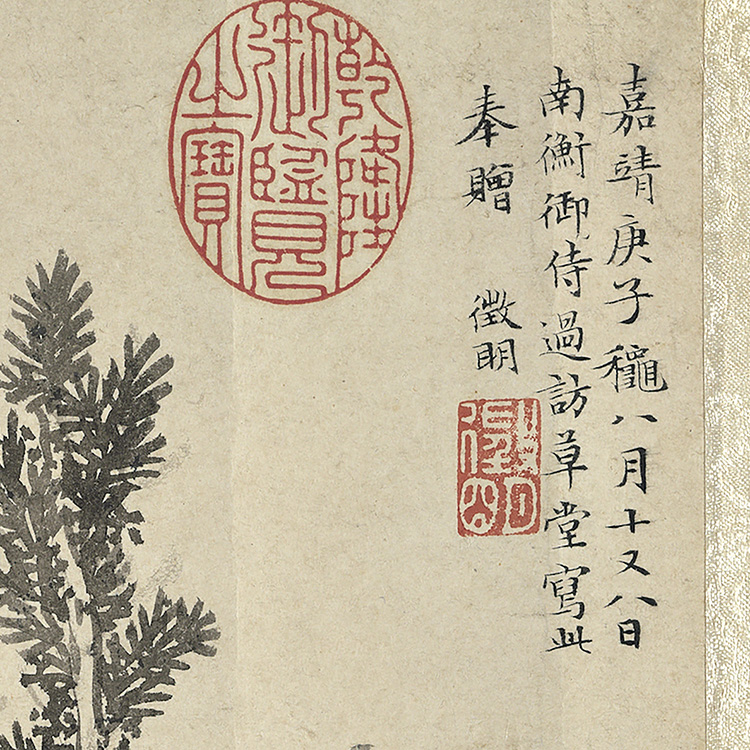 嘉靖庚子龝八月十又八日
南衡御侍過訪草堂寫此
奉贈 徵明
乾隆
御覽
之寶
徵明